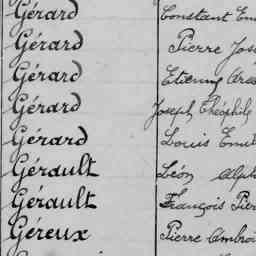 Gérard Constant Em
Gérard Pierre Jos
Gérard Etienne
Gérard Joseph Théophile
Gérard Louis Emil
Gérault Léon Alph
Gérault François Pier
Géreux Pierre Ambroi